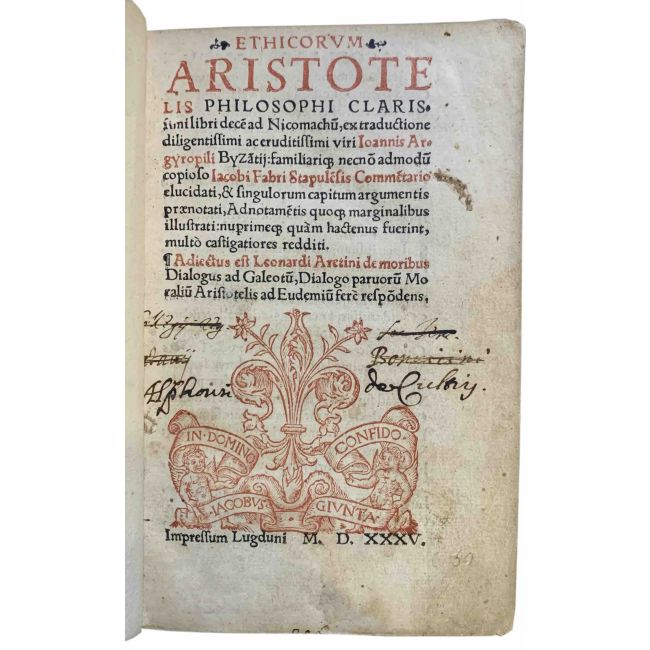 ETHICORVM
ARISTOTE
LIS PHILOSOPHI CLARIS-
simi libri decē ad Nicomachū, ex traductione
diligentissimi ac eruditissimi viri Ioannis Ar-
gyropili Byzātij: familiariq; necnō admodū
copioso Iacobi Fabri Stapulēsis Commētario
elucidati, & singulorum capitum argumentis
prænotati, Adnotamētis quoq; marginalibus
illustrati: nuprimeq; quàm hactenus fuerint,
multò castigatiores redditi.
¶ Adiectus est Leonardi Aretini de moribus
Dialogus ad Galeotū, Dialogo paruorū Mo
raliū Aristotelis ad Eudemiū ferè respōdens,
IN·DOMINO CONFIDO
IACOBVS GIVNTA
Impressum Lugduni M. D. XXXV.